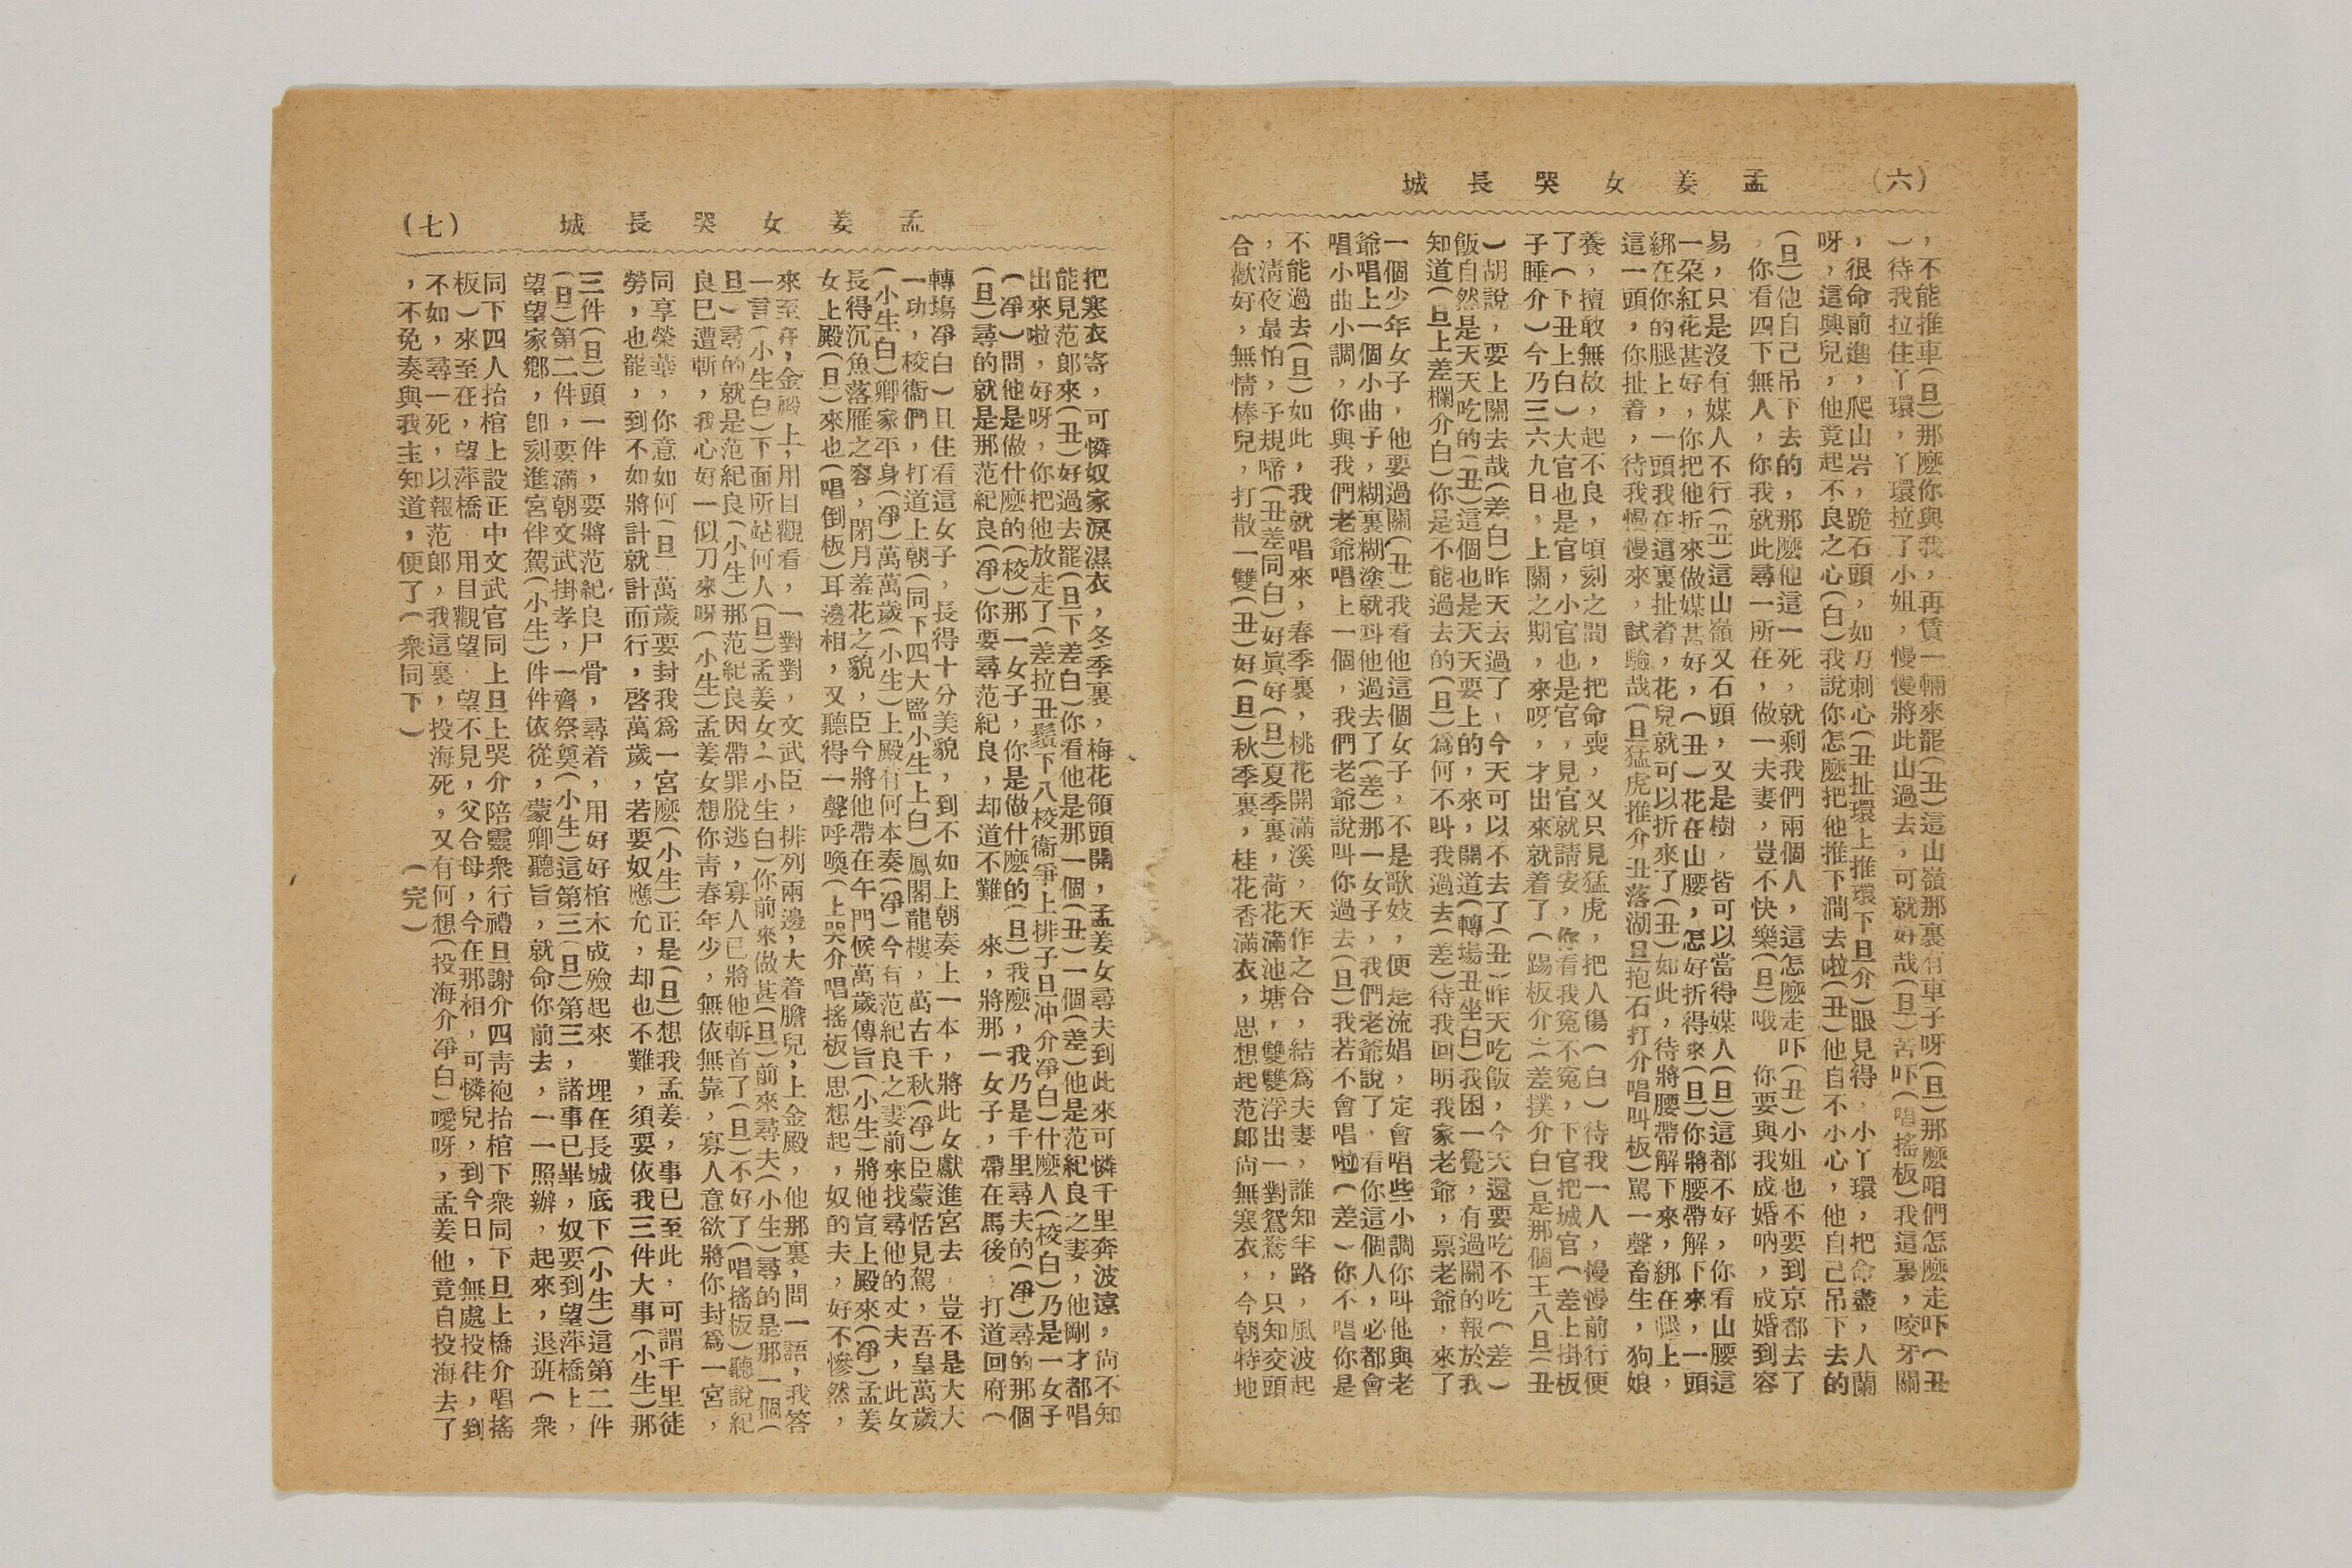 (六)
孟姜女哭長城
，不能推車(旦)那麼你與我，再賃一輛來罷(丑)這山嶺那裏有車子呀(旦)那麼咱們怎麼走吓(丑
)待我拉住丫環，丫環拉了小姐，慢慢將此山過去，可就好哉(旦)苦吓(唱搖板)我這裏，咬牙關
，很命前進，爬山岩，跪石頭，如刀刺心(丑扯環上推環下旦介)眼見得，小丫環，把命盡，人蘭
呀，這興兒，他竟起不良之心(白)我說你怎麼把他推下澗去啦(丑)他自不小心，他自己吊下去的
(旦)他自己吊下去的，那麼他這一死，就剩我們兩個人，這怎麼走吓(丑)小姐也不要到京都去了
，你看四下無人，你我就此尋一所在，做一夫妻，豈不快樂(旦)哦 你要與我成婚吶，成婚到容
易，只是沒有媒人不行(丑)這山嶺又石頭，又是樹，皆可以當得媒人(旦)這都不好，你看山腰這
一朶紅花甚好，你把他折來做媒甚好，(丑)花在山腰，怎好折得來(旦)你將腰帶解下來，一頭
綁在你的腿上，一頭我在這裏扯着，花兒就可以折來了(丑)如此，待將腰帶解下來，綁在腿上，
這一頭，你扯着，待我慢慢來，試驗哉(旦猛虎推介丑落湖旦抱石打介唱叫板)罵一聲畜生，狗娘
養，擅敢無故，起不良，頃刻之間，把命喪，又只見猛虎，把人傷(白)待我一人，慢慢前行便
了(下丑上白)大官也是官，小官也是官，見官就請安，你看我冤不冤，下官把城官(差上掛板
子睡介)今乃三六九日，上關之期，來呀，才出來就着了(踢板介)(差撲介白)是那個王八旦(丑
)胡說，要上關去哉(差白)昨天去過了，今天可以不去了(丑)昨天吃飯，今天還要吃不吃(差)
飯自然是天天吃的(丑)這個也是天天要上的，來，開道(轉塲丑坐白)我困一覺，有過關的報於我
知道(旦上差欄介白)你是不能過去的(旦)爲何不叫我過去(差)待我回明我家老爺，禀老爺，來了
一個少年女子，他要過關(丑)我看他這個女子，不是歌妓，便是流娼，定會唱些小調你叫他與老
爺唱上一個小曲子，糊裏糊塗就叫他過去了(差)那一女子，我們老爺說了，看你這個人，必都會
唱小曲小調，你與我們老爺唱上一個，我們老爺說叫你過去(旦)我若不會唱啦(差)你不唱你是
不能過去(旦)如此，我就唱來，春季裏，桃花開滿溪，天作之合，結爲夫妻，誰知半路，風波起
，淸夜最怕，子規啼(丑差同白)好眞好(旦)夏季裏，荷花滿池塘，雙雙浮出一對鴛鴦，只知交頭
合歡好，無情棒兒，打散一雙(丑)好(旦)秋季裏，桂花香滿衣，思想起范郞尙無寒衣，今朝特地
(七)
孟姜女哭長城
把寒衣寄，可憐奴家淚濕衣，冬季裏，梅花領頭開，孟姜女尋夫到此來可憐千里奔波遠，尙不知
能見范郞來(丑)好過去罷(旦下差白)你看他是那一個(丑)一個(差)他是范紀良之妻，他剛才都唱
出來啦，好呀，你把他放走了(差拉丑鬚下八校衞爭上排子旦冲介淨白)什麼人(校白)乃是一女子
(淨)問他是做什麼的(校)那一女子，你是做什麼的(旦)我麼，我乃是千里尋夫的(淨)尋的那個
(旦)尋的就是那范紀良(淨)你要尋范紀良，却道不難 來，將那一女子，帶在馬後 打道回府(
轉塲淨白)且住看這女子，長得十分美貌，到不如上朝奏上一本，將此女獻進宮去，豈不是大大
一功，校衞們，打道上朝(同下四大監小生上白)鳳閣龍樓，萬古千秋(淨)臣蒙恬見駕，吾皇萬歲
(小生白)卿家平身(淨)萬萬歲(小生)上殿有何本奏(淨)今有范紀良之妻前來找尋他的丈夫，此女
長得沉魚落雁之容，閉月羞花之貌，臣今將他帶在午門候萬歲傳旨(小生)將他宣上殿來(淨)孟姜
女上殿(旦)來也(唱倒板)耳邊相，又聽得一聲呼喚(上哭介唱搖板)思想起，奴的夫，好不慘然，
來至在，金殿上，用目觀看，一對對，文武臣，排列兩邊，大着膽兒，上金殿，他那裏，問一語，我答
一言(小生白)下面所站何人(旦)孟姜女，(小生白)你前來做甚(旦)前來尋夫(小生)尋的是那一個(
旦)尋的就是范紀良(小生)那范紀良因帶罪脫逃，寡人已將他斬首了(旦)不好了(唱搖板)聽說紀
良已遭斬，我心好一似刀來呀(小生)孟姜女想你靑春年少，無依無靠，寡人意欲將你封爲一宮，
同享榮華，你意如何(旦)萬歲要封我爲一宮麼(小生)正是(旦)想我孟姜，事已至此，可謂千里徒
勞，也罷，到不如將計就計而行，啓萬歲，若要奴應允，却也不難，須要依我三件大事(小生)那
三件(旦)頭一件，要將范紀良尸骨，尋着，用好好棺木成殮起來 埋在長城底下(小生)這第二件
(旦)第二件，要滿朝文武掛孝，一齊祭奠(小生)這第三(旦)第三，諸事已畢，奴要到望萍橋上，
望望家鄉，卽刻進宮伴駕(小生)件件依從，蒙卿聽旨，就命你前去，一一照辦，起來，退班(衆
同下四人抬棺上設正中文武官同上旦上哭介陪靈衆行禮旦謝介四靑袍抬棺下衆同下旦上橋介唱搖
板)來至在，望萍橋 用目觀望 望不見，父合母，今在那相，可憐兒，到今日，無處投往，到
不如，尋一死，以報范郞，我這裏，投海死，又有何想(投海介淨白)噯呀，孟姜他竟自投海去了
，不免奏與我主知道，便了(衆同下)　　(完)